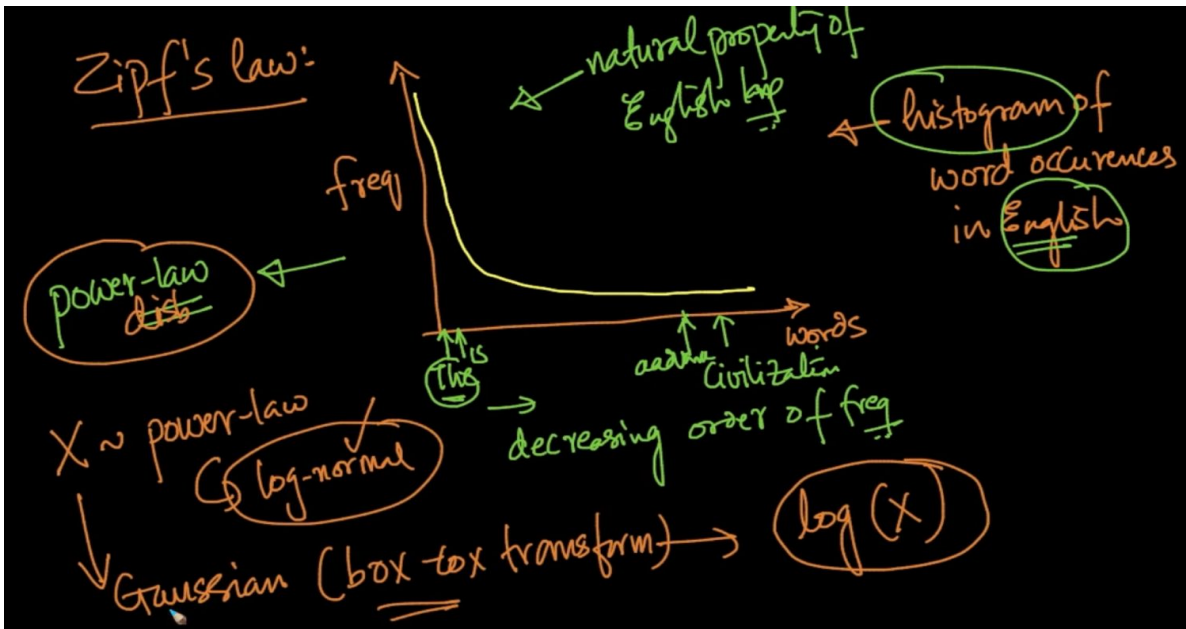 Zipf's law:
natural property of
English lang
histogram of
word occurences
in English
freq
power-law
dist
words
This
is
Civilization
decreasing order of freq
X ~ power-law
log-normal
Gaussian (box-cox transform)
log (X)